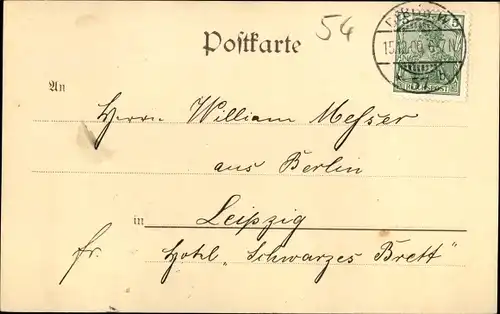 54
Postkarte
An
Herrn William Messer
aus Berlin
in
Leipzig
fr. Hotel „Schwarzes Brett“